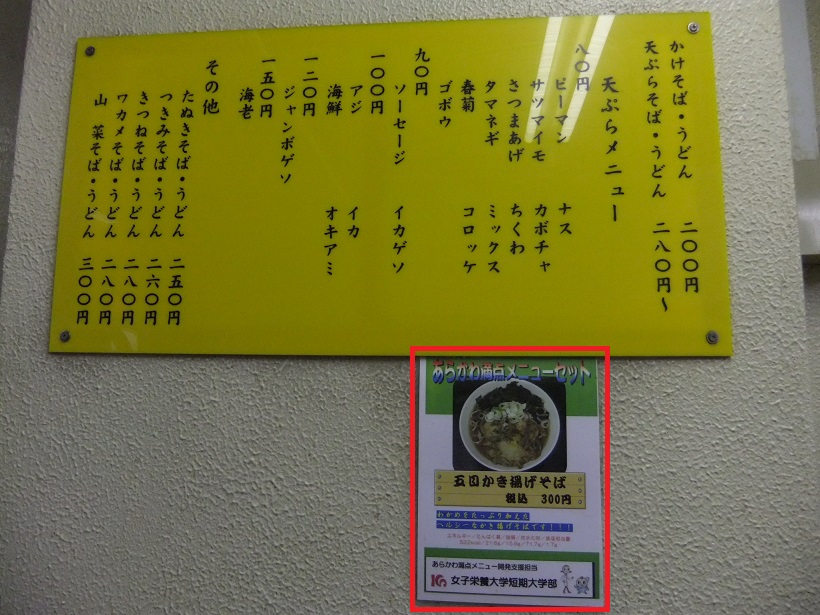 かけそば・うどん 二〇〇円
天ぷらそば・うどん 二八〇円〜
天ぷらメニュー
八〇円
ピーマン ナス
サツマイモ カボチャ
さつまあげ ちくわ
タマネギ ミックス
春菊 コロッケ
ゴボウ
九〇円
ソーセージ イカゲソ
一〇〇円
アジ イカ
海鮮 オキアミ
一二〇円
ジャンボゲソ
一五〇円
海老
その他
たぬきそば・うどん 二五〇円
つきみそば・うどん 二六〇円
きつねそば・うどん 二八〇円
ワカメそば・うどん 二八〇円
山菜そば・うどん 三〇〇円
あらかわ満点メニューセット
五目かき揚げそば
税込 300円
わかめをたっぷり加えた
ヘルシーなかき揚げそばです！！！
エネルギー／たんぱく質／脂質／炭水化物／食塩相当量
あらかわ満点メニュー開発支援担当
女子栄養大学短期大学部